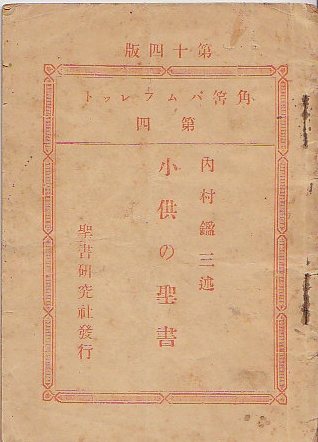 第十四版
角筈パムフレット
第四
内村鑑三述
小供の聖書
聖書研究社發行